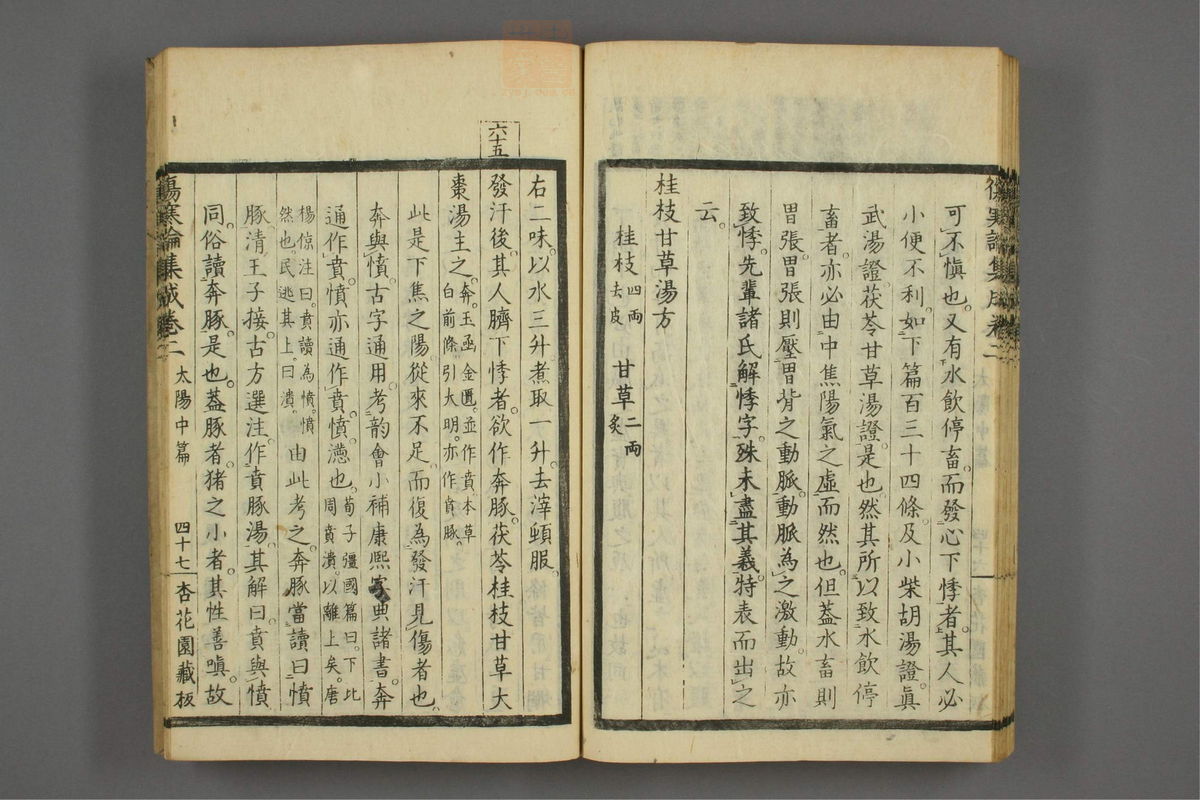 可不愼也。又有水飲停畜。而發心下悸者。其人必
小便不利。如下篇百三十四條。及小柴胡湯證。眞
武湯證。茯苓甘草湯證。是也。然其所以致水飲停
畜者。亦必由中焦陽氣之虛而然也。但蓋水畜則
胃張。胃張則壓胃背之動脈。動脈為之激動。故亦
致悸。先輩諸氏解悸字。殊未盡其義。特表而出之
云。
桂枝甘草湯方
桂枝四兩去皮 甘草二兩炙
右二味。以水三升煮取一升。去滓頓服。
六十五
發汗後。其人臍下悸者。欲作奔豚。茯苓桂枝甘草大
棗湯主之。奔。玉函金匱。並作賁。本草白前條。引大明。亦作賁豚。
此是下焦之陽。從來不足。而復為發汗見傷者也。
奔與憤。古字通用。考韵會小補康熙字典諸書。奔
通作賁。憤亦通作賁。憤。懣也。荀子彊國篇曰。下比周賁潰。以離上矣。唐
楊倞注曰。賁讀為憤。憤然也。民逃其上。曰潰。由此考之。奔豚當讀曰憤
豚。清王子接。古方選注。作賁豚湯。其解曰。賁與憤
同。俗讀奔豚。是也。蓋豚者。猪之小者。其性善嗔。故
傷寒論集成卷二 太陽中篇 四十七 杏花園藏板